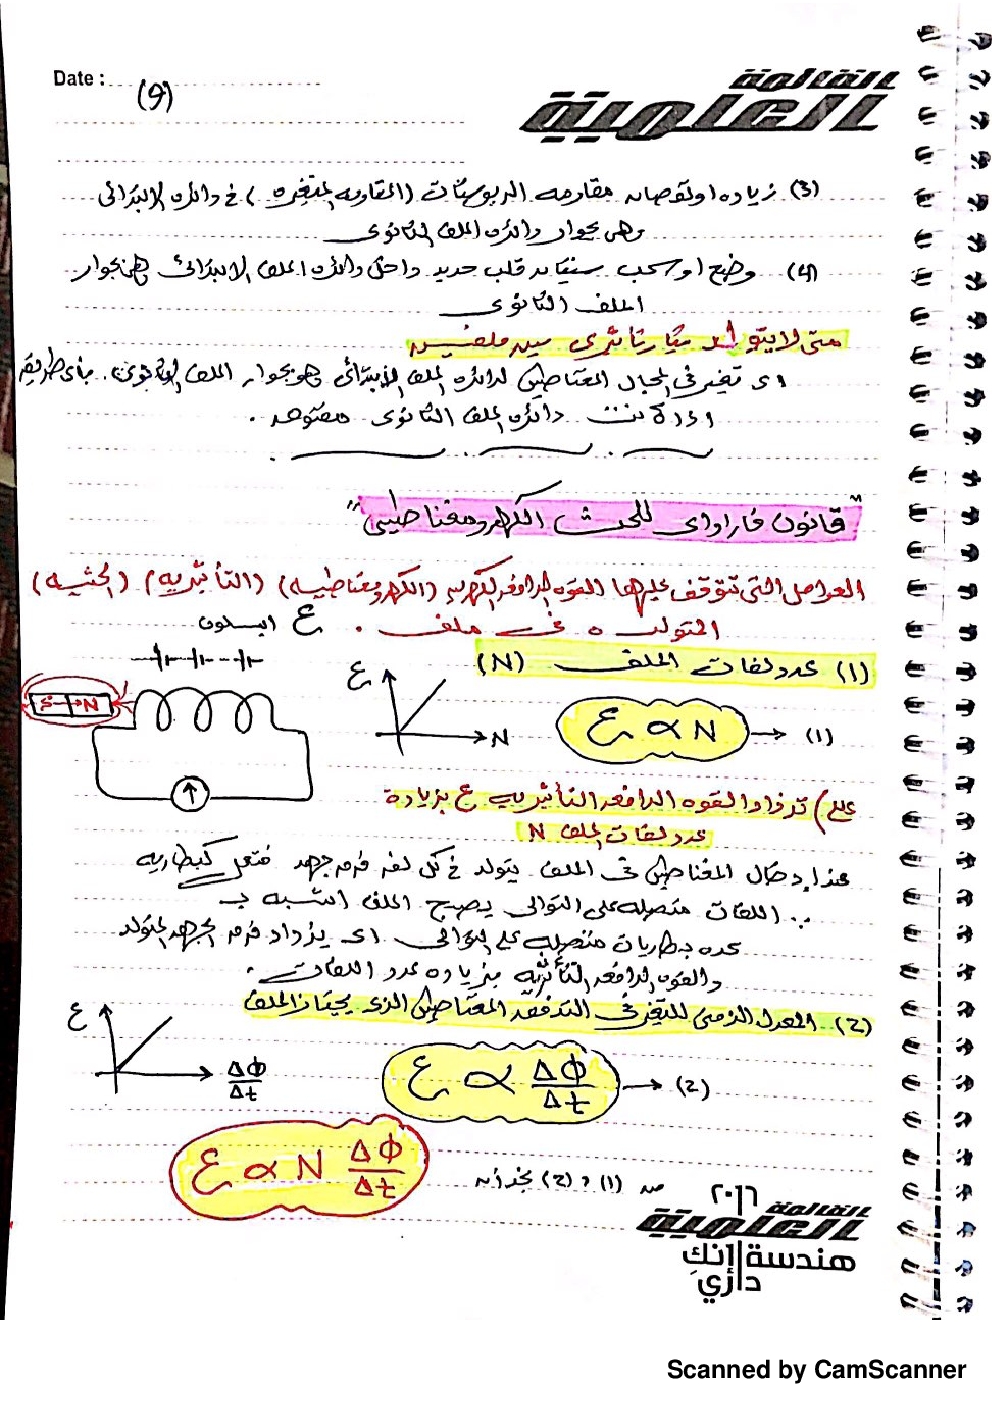 Date :
(9)
القائمة
العلمية
(3) زياده او نقصان مقاومه الريوستات (المقاومه المتغيره) فى دائره الابتدائى
وهى بجوار دائره الملف الثانوى
(4) وضع او سحب سيقان قلب حديد داخل دائره الملف الابتدائى وهى بجوار
الملف الثانوى
متى لا يتولد تيار تأثيرى بين ملفين
اى تغير فى المجال المغناطيسى لدائره الملف الابتدائى وهو بجوار الملف الثانوى بأى طريقه
اذا كانت دائره الملف الثانوى مفتوحه .
"قانون فاراداى للحث الكهرومغناطيسى"
العوامل التى تتوقف عليها القوه الدافعه الكهربيه (الكهرومغناطيسيه) (التأثيريه) (الحثيه)
المتولده فى ملف . ع ابسلون
(1) عدد لفات الملف (N)
S → N
ع
N
ع ∝ N → (1)
علل) تزداد القوه الدافعه التأثيريه ع بزيادة
عدد لفات الملف N
عند ادخال المغناطيس فى الملف يتولد فى كل لفه فرق جهد فتعمل كبطاريه
∵ اللفات متصله على التوالى يصبح الملف اشبه بـ
عده بطاريات متصله على التوالى اى يزداد فرق الجهد المتولد
والقوه الدافعه التأثيريه بزياده عدد اللفات .
(2) المعدل الزمنى للتغير فى التدفق المغناطيسى الذى يجتاز الملف
ع
ΔΦ/Δt
ع ∝ ΔΦ/Δt → (2)
من (1) ، (2) نجد أنه
ع ∝ N ΔΦ/Δt
٢٠١٦
القائمة
العلمية
هندسة إنك
داري
Scanned by CamScanner